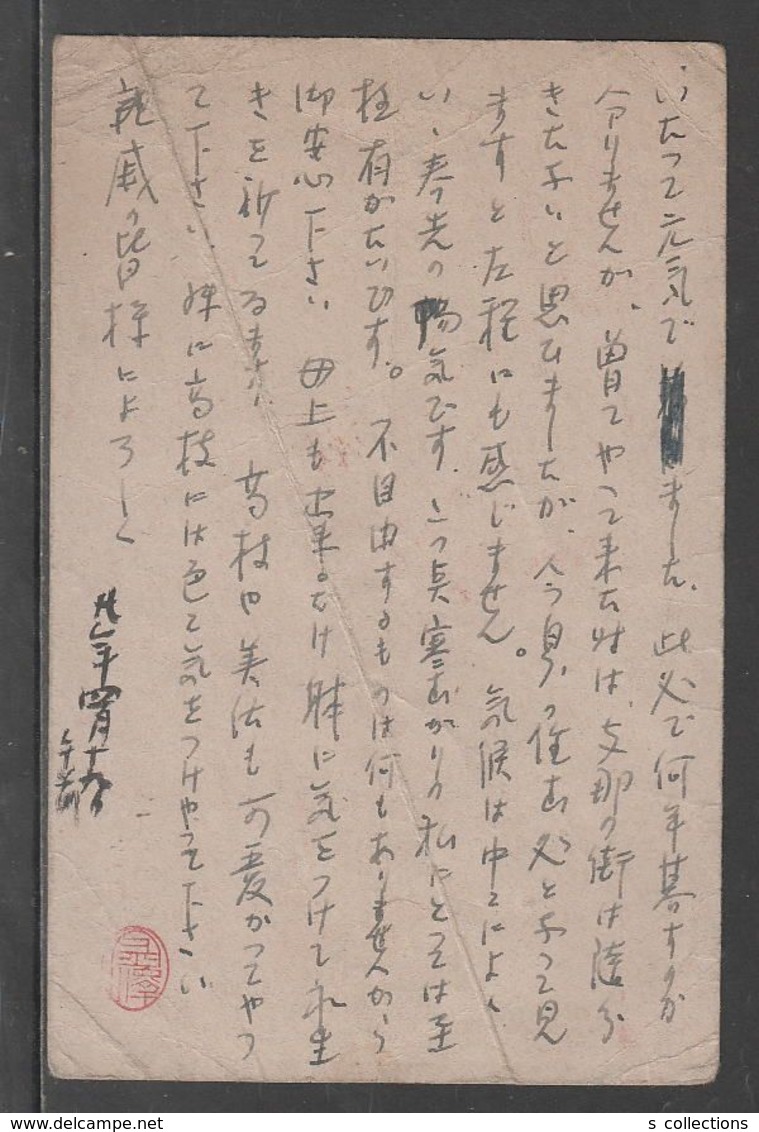 いたって元気で ました、此処で何年暮すのか
分りませんが、曽てやって来た時は、支那の街は随分
きたないと思ひましたが、今自分の住む処となって見
ますと左程にも感じません。気候は中々によく
い、春先の陽気です、この点寒むがりの私にとっては至
極有がたいです。不自由するものは何もありませんから
御安心下さい 母上も出来るだけ体に気をつけて永生
きを祈ってゐます、高枝や美佐も可愛がってやっ
て下さい、殊に高枝には色々気をつけやって下さい
親戚の皆様によろしく
年四月十九日
午前
s collections